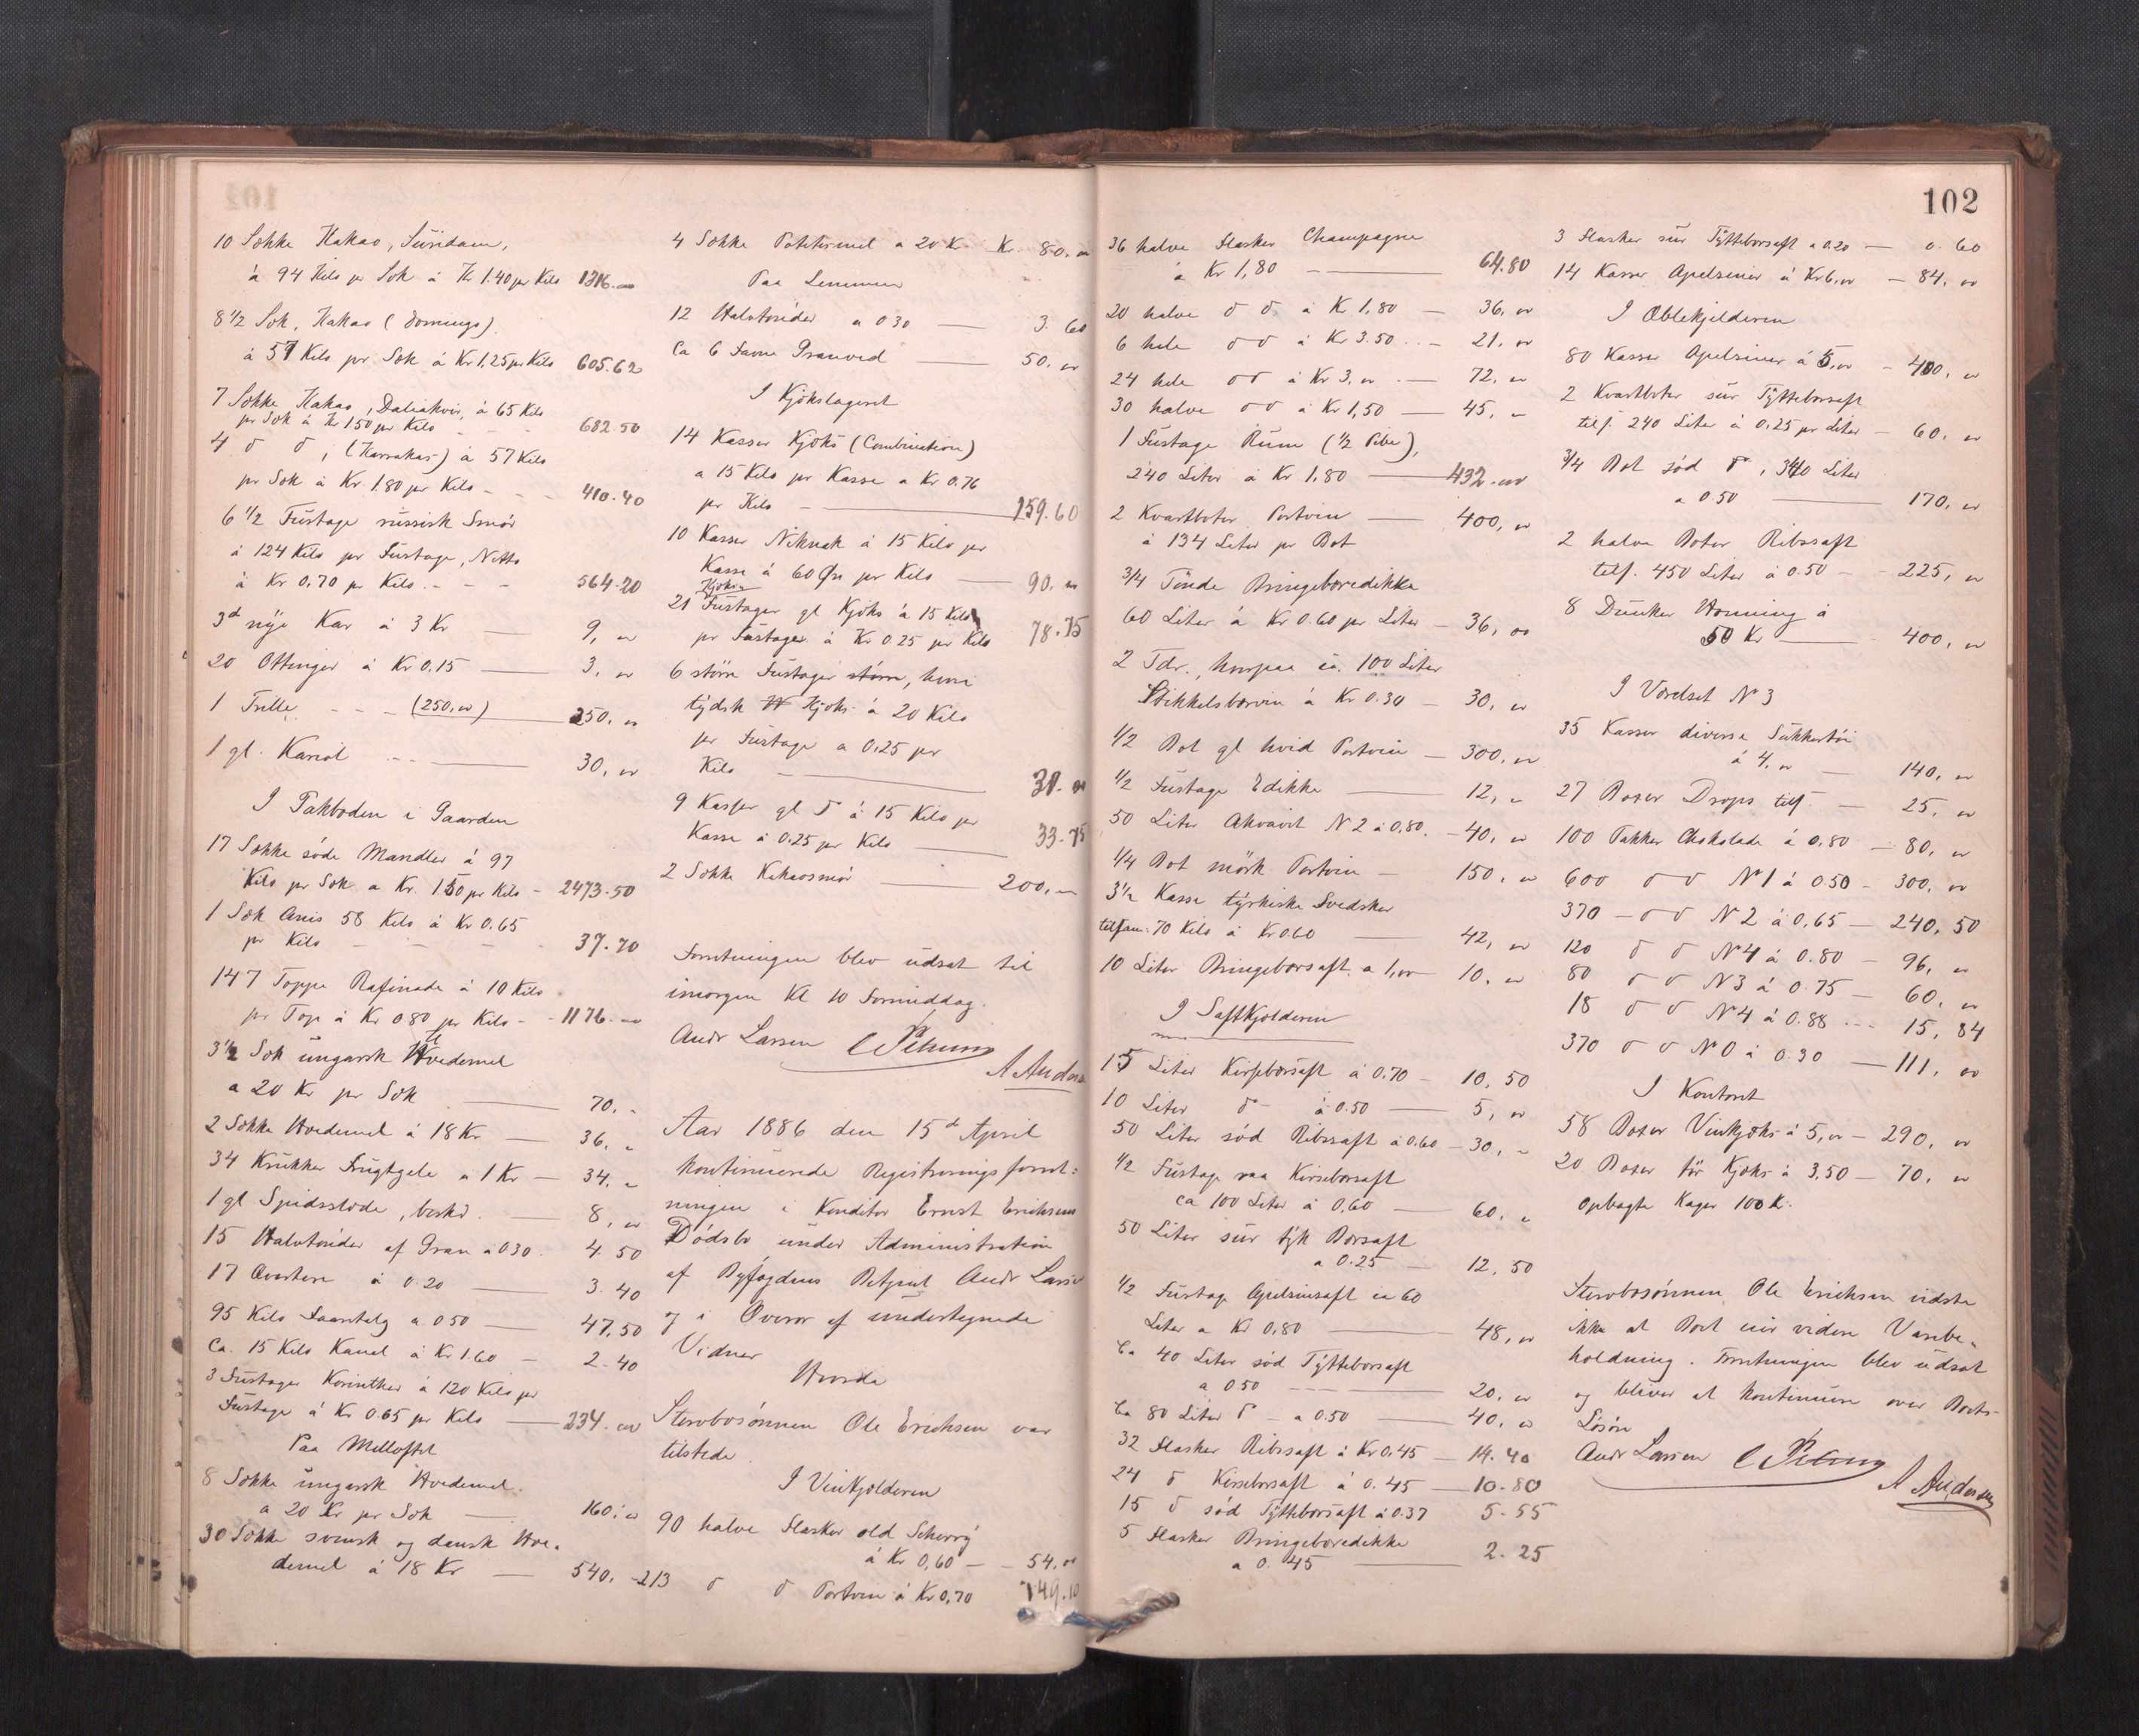 10 Sække Kakao, Suridam,
à 94 Kilo pr Sæk á Kr 1.40 pr Kilo 1316.00
8 1/2 Sæk, Kakao (Domingo)
à 57 Kilo pr Sæk á Kr 1,25 pr Kilo 605.62
7 Sække Kakao, á 65 Kilo
pr Sæk á Kr 1.50 pr Kilo - - - 682.50
4 d d, (Karrakas) à 57 Kilo
pr Sæk á Kr 1.80 pr Kilo - - - 410.40
6 1/2 Fustage russisk Smør
à 124 Kilo pr Fustage, Netto
à Kr 0.70 pr Kilo - - - 564.20
3d nye Kar à 3 Kr — 9, "
20 Ottinger á Kr 0.15 — 3, "
1 Trille - - - (250,00) — 250, "
1 gl. Kariol - - — 30, "
I Pakboden i Gaarden
17 Sække søde Mandler á 97
Kilo pr Sæk a Kr. 1.50 pr Kilo - 2473.50
1 Sæk Anis 58 Kilo á Kr 0.65
pr Kilo - - - 37.70
147 Toppe Rafinade á 10 Kilo
pr Top á Kr 0.80 pr Kilo - - 1176.00
3 1/2 Sæk ungarsk Hvedemel
a 20 Kr pr Sæk — 70. "
2 Sække Hvedemel á 18 Kr — 36, "
34 Krukker Frugtgele a 1 Kr — 34. "
1 gl Spidsslæde, besk. — 8, "
15 Halvtønder af Gran a 0.30. 4.50
17 á 0.20 — 3.40
95 Kilo Faaretalg a 0.50 — 47,50
Ca. 15 Kilo Kanel á Kr 1.60 — 2.40
3 Fustager Korinther á 120 Kilo pr
Fustage á Kr 0.65 pr Kilo — 234.00
Paa Melloftet
8 Sække ungarsk Hvedemel.
a 20 Kr pr Sæk — 160. "
30 Sække svensk og dansk Hve-
demel á 18 Kr — 540, -
4 Sække Potetesmel a 20 K Kr. 80. "
Paa Lemmen
12 Halvtønder a 0.30 — 3.60
Ca 6 Favne Granved — 50, "
I Kjækslageret
14 Kasser Kjæks (Combination)
a 15 Kilo pr Kasse a Kr 0.76
pr Kilo — 159.60
10 Kasser Niknak á 15 Kilo pr
Kasse á 60 Øre pr Kilo — 90. "
Kjæks
21 Fustager gl Kjæks á 15 Kilo
pr Fustager á Kr 0.25 pr Kilo 78.75
6 større Fustager større, hvori
tydsk Kjæks á 20 Kilo
pr Fustage a 0.25 pr
Kilo — 30. "
9 Kasser gl d á 15 Kilo pr
Kasse á 0.25 pr Kilo — 33.75
2 Sække Kakaosmør — 200, "
Forretningen blev udsat til
imorgen Kl 10 Formiddag.
Andr Larsen A Anders
Aar 1886 den 15d April
kontinuerede Registreringsforret-
ningen i Konditor Ernst Erichsens
Dødsbo under Administration
af Byfogdens Betjent Andr Larsen
og i Overvær af undertegnede
Vidner
Hvorda
Stervbosønnen Ole Erichsen var
tilstede
I Vinkjælderen
90 halve Flasker old Scherry
á Kr 0,60 — 54. "
213 d d Portvin á Kr 0,70 149.10
102
36 halve Flasker Champagne
á Kr 1,80 — 64.80
20 halve d d á Kr 1,80 — 36, "
6 hele d d á Kr 3.50 - - 21. "
24 hele d d á Kr 3, " — 72, "
30 halve d d á Kr 1,50 — 45, "
1 Fustage Rum (1/2 Pibe),
240 Liter á Kr 1,80 — 432.00
2 Kvartboter Portvin — 400, "
á 134 Liter pr Bot
3/4 Tønde Bringebæredikke
60 Liter á Kr 0.60 pr Liter — 36, 00
2 Tdr., hvorpaa ca. 100 Liter
Stikkelsbærvin á Kr 0.30 — 30, "
1/2 Bot gl hvid Portvin — 300, "
1/2 Fustage Edikke — 12, "
50 Liter Akvavit N 2 á 0,80. — 40, "
1/4 Bot mørk Portvin — 150, "
3 1/2 Kasse tyrkiske Svedsker
tilsam. 70 Kilo á Kr 0.60 — 42, "
10 Liter Bringebærsaft a 1,00 — 10, "
I Saftkjælderen
15 Liter Kirsebærsaft á 0.70 — 10,50
10 Liter d á 0.50 — 5, "
50 Liter sød Ribssaft á 0.60 — 30, "
1/2 Fustage raa Kirsebærsaft
ca 100 Liter á 0.60 — 60. "
50 Liter sur tyk Bærsaft
a 0.25 — 12,50
1/2 Fustage Apelsinsaft ca 60
Liter a Kr 0,80 — 48, "
Ca 40 Liter sød Tyttebærsaft
a 0.50 — 20. "
Ca 80 Liter d a 0.50 — 40. "
32 Flasker Ribssaft á Kr 0.45 — 14.40
24 d Kirsebærsaft á 0.45 — 10.80
15 d sød Tyttebærsaft á 0.37 5.55
5 Flasker Bringebæredikke
a 0.45 — 2.25
3 Flasker sur Tyttebærsaft a 0.20 — 0.60
14 Kasser Apelsiner á Kr 6,00 — 84, "
I Æblekjelderen
80 Kasser Apelsiner á 5,00 — 400, "
2 Kvartboter sur Tyttebærsaft
tils. 240 Liter á 0.25 pr Liter — 60, "
3/4 Bot sød d, 340 Liter
a 0.50 — 170, "
2 halve Boter Ribssaft
tils. 450 Liter á 0.50 — 225, "
8 Dunker Honning á
50 Kr — 400, "
I Værelset N 3
35 Kasser diverse Sukkertøi
á 4, " — 140, "
27 Boxer Drops tils. — 25, "
100 Pakker Chokolade á 0,80 — 80, "
600 d d N 1 á 0.50 — 300, "
370 — d d N 2 á 0,65 — 240,50
120 d d N 4 á 0.80 — 96, "
80 d d N 3 á 0.75 — 60, "
18 d d N 4 á 0.88 - - - 15,84
370 d d N 0 á 0.30 — 111, "
I Kontoret
58 Boxer Vinkjæks á 5, " — 290, "
20 Boxer tør Kjæks á 3,50 — 70, "
Opbagte Kager 100 Kr.
Stervbosønnen Ole Erichsen vidste
ikke at Boet eier videre Varebe-
holdning. Forretningen blev udsat
og bliver at kontinuere over Boets
Løsøre
Andr Larsen A Andersen